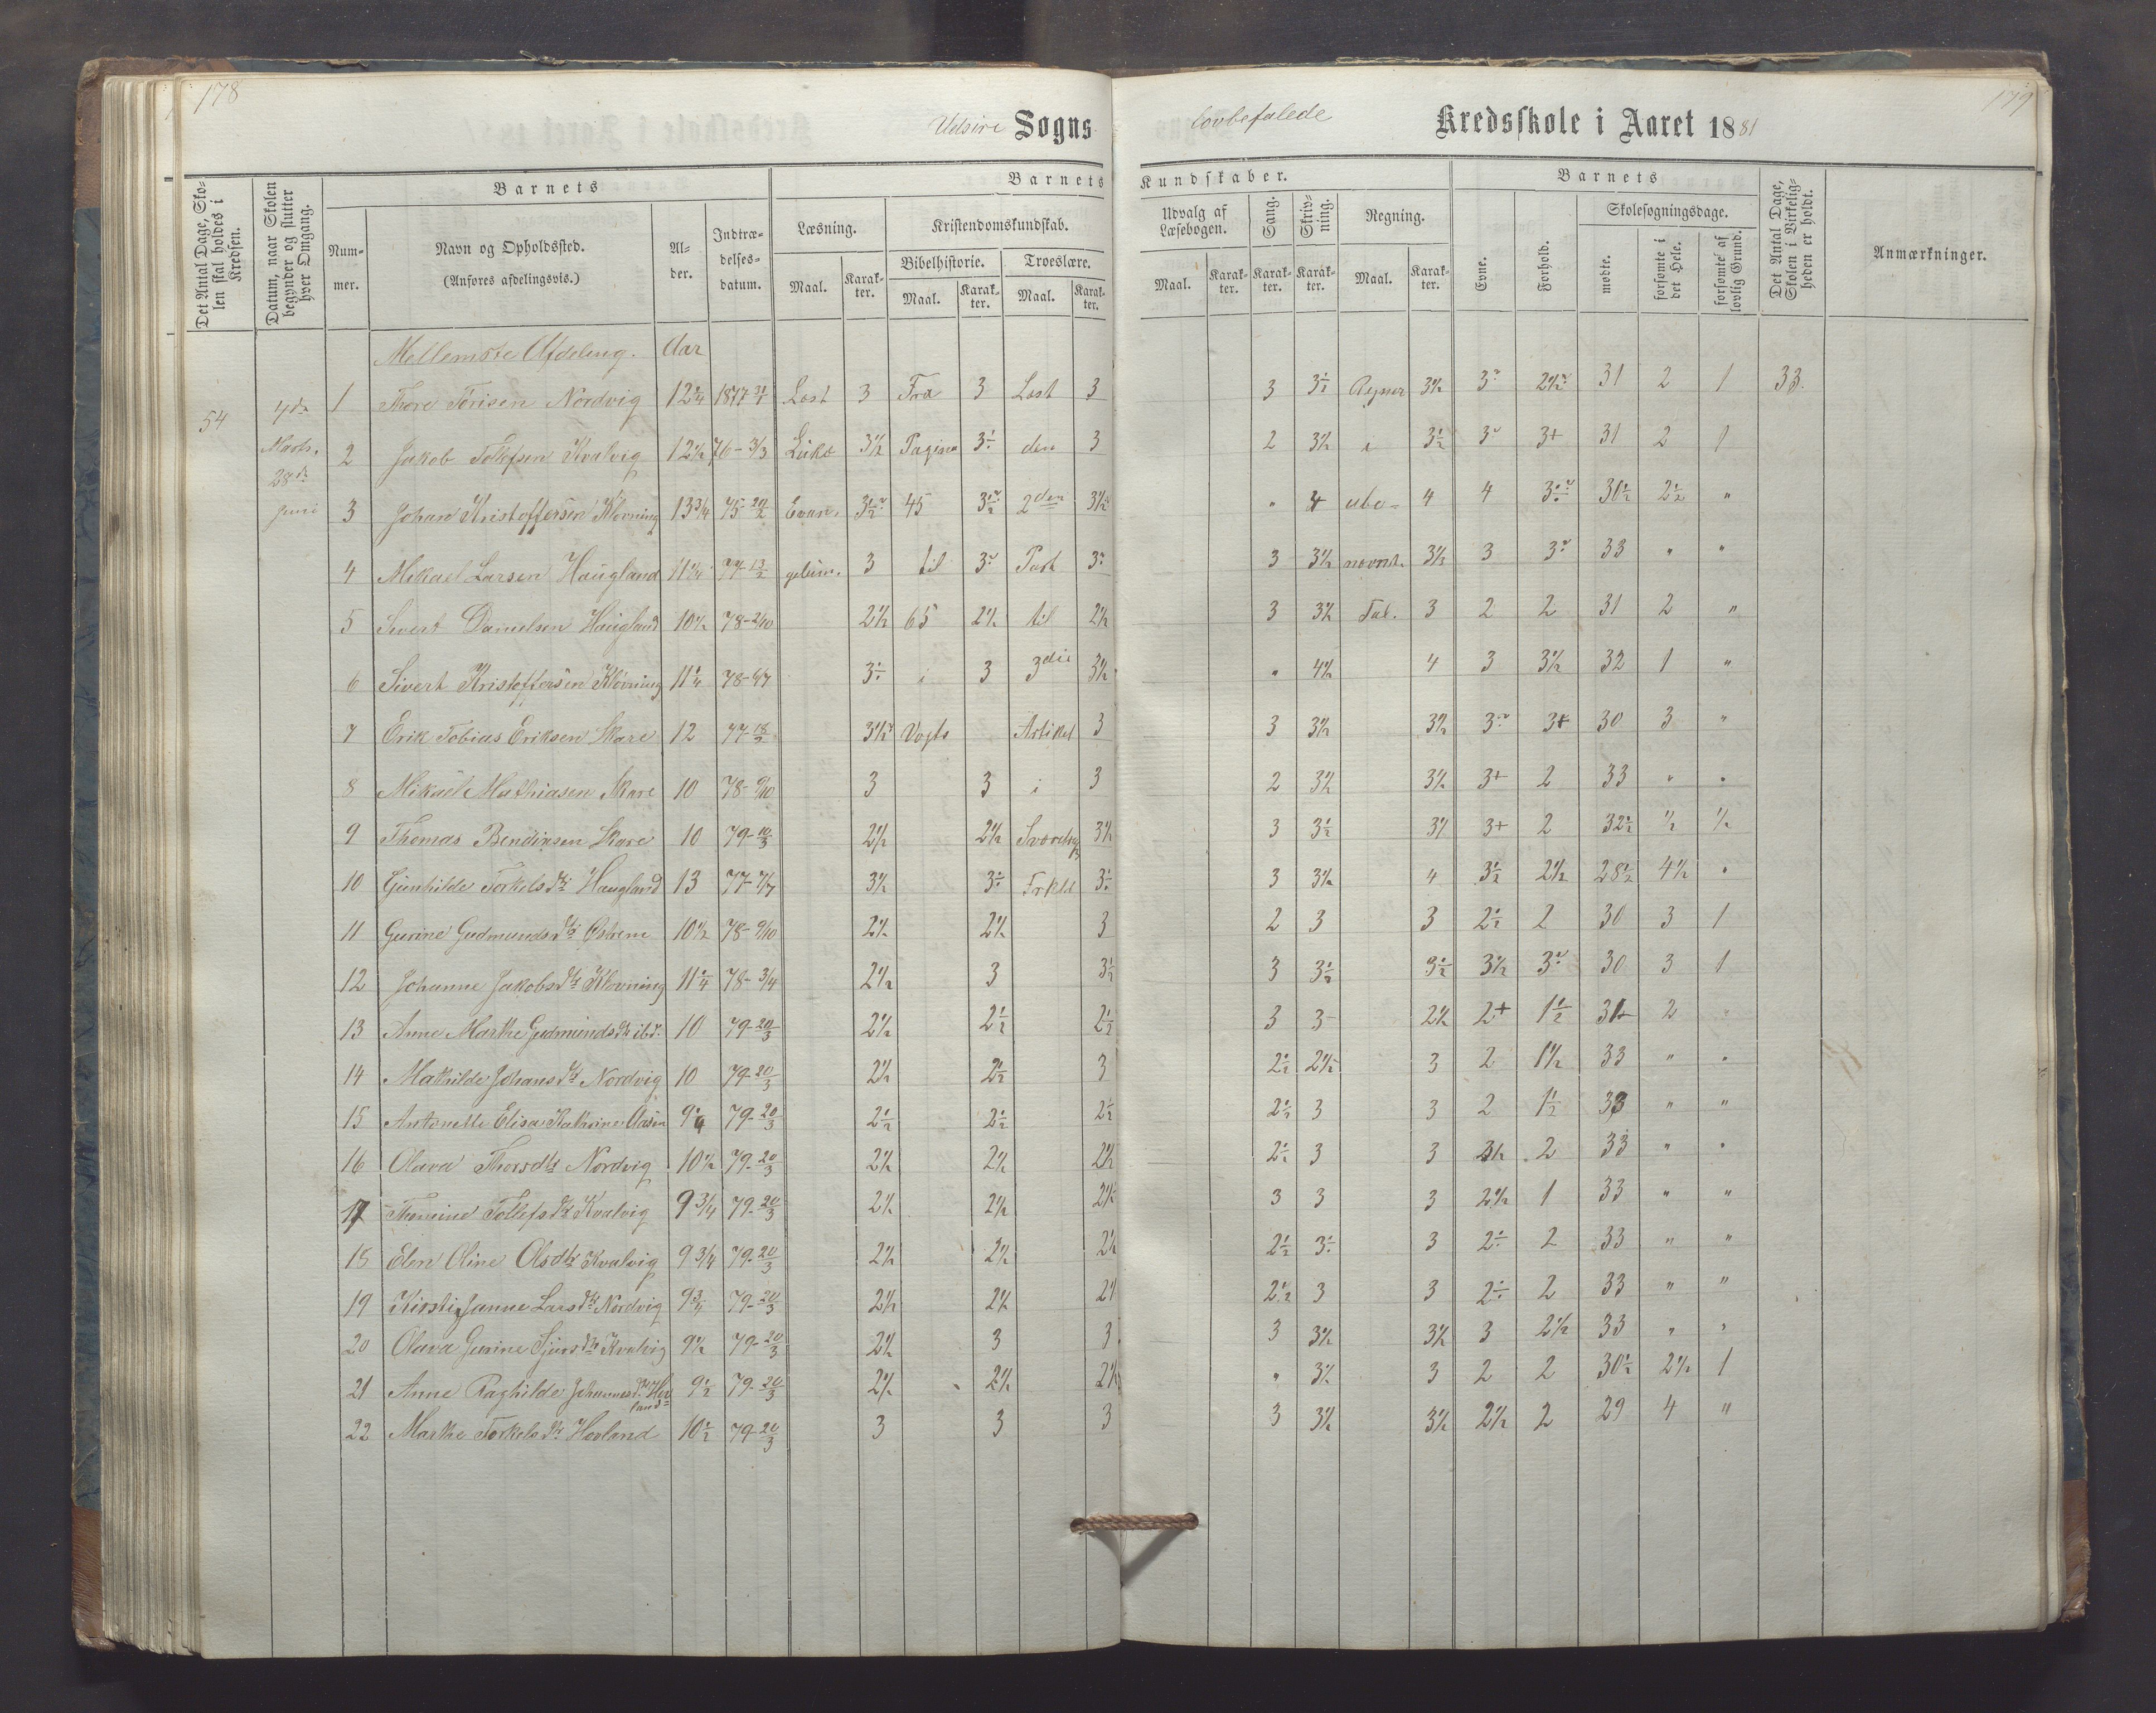 178
179
Udsire Sogns lovbefalede Kredsskole i Aaret 1881
Det Antal Dage, Skolen skal holdes i Kredsen.
Datum, naar Skolen begynder og slutter hver Omgang.
Barnets
Nummer.
Navn og Opholdssted.
(Anføres afdelingsvis.)
Alder.
Indtrædelsesdatum.
Barnets Kundskaber.
Læsning.
Maal.
Karakter.
Kristendomskundskab.
Bibelhistorie.
Maal.
Karakter.
Troeslære.
Maal.
Karakter.
Udvalg af Læsebogen.
Maal.
Karakter.
Sang.
Karakter.
Skrivning.
Karakter.
Regning.
Maal.
Karakter.
Barnets
Evne.
Forhold.
Skolesøgningsdage.
mødte.
forsømte i det Hele.
forsømte af lovlig Grund.
Det Antal Dage, Skolen i Virkeligheden er holdt.
Anmærkninger.
Mellemste Afdeling. Aar
54
4de
Marts.
28de
Juni
1 Thore Torisen Nordvig 12 3 Fra 3 Læst 3 3 3 31 2 1 33.
2 Jakob Tollefsen Kvalvig 12½ 76-3/3 Lukæ 3½ Pagina den 3 2 3½ i 3½ 3 3+ 31 2 1
3 Johan Kristoffersen Kløvning 13¾ 75-20/2 Evan. 45 2den 3½ " 4 ube- 4 4 30½ 2½ "
4 Mikael Larsen Haugland 11¼ 77-13/2 gelium. 3 til Part 3 3½ nævnte 3½ 3 33 " "
5 Sivert Danielsen Haugland 10½ 78-2/10 2½ 65 2½ til 2½ 3 3½ Tal. 3 2 2 31 2 "
6 Sivert Kristoffersen Kløvning 11¼ i 3 3die 3½ " 4½ 4 3 3½ 32 1 "
7 Erik Tobias Eriksen Skare 12 77-18/2 Vogts Artikel 3 3 3½ 3½ 3+ 30 3 "
8 Mikael Mathiasen Skare 10 78-9/10 3 3 i 3 2 3½ 3½ 3+ 2 33 " "
9 Thomas Bendixsen Skare 10 79-10/3 2½ 2½ 3½ 3 3½ 3½ 3+ 2 32½ ½ ½
10 Gunhilde Torkelsdtr Haugland 13 77-7/7 3½ 3 3½ 4 3½ 2½ 28½ 4½ "
11 Gurine Gudmundsdtr Østrem 10½ 78-9/10 2½ 2½ 3 2 3 3 2½ 2 30 3 1
12 Johanne Jakobsdtr Kløvning 11¼ 78-3/4 2½ 3 3½ 3 3½ 3½ 3½ 30 3 1
13 Anne Marthe Gudmundsdtr ibd. 10 79-20/3 2½ 2½ 2½ 3 3- 2½ 2+ 1½ 31 2 "
14 Mathilde Johansdtr Nordvig 10 79-20/3 2½ 2½ 3 2½ 2½ 3 2 1½ 33 " "
15 Antonette Elisa Kathrine Aasen 9¼ 79-20/3 2½ 2½ 2½ 2½ 3 3 2 1½ 33 " "
16 Olava Thorsdtr Nordvig 10½ 79-20/3 2½ 2½ 2½ 2½ 3 3 2 33 " "
17 Thomine Tollefsdtr Kvalvig 9¾ 79-20/3 2½ 2½ 2½ 3 3 3 2½ 1 33 " "
18 Elen Oline Olsdtr Kvalvig 9¾ 79-20/3 2½ 2½ 2½ 2½ 3 2 33 " "
19 Kirsti Janne Larsdtr Nordvig 9¾ 79-20/3 2½ 2½ 2½ 3 3 2 33 " "
20 Olava Gurine Sjursdtr Kvalvig 9½ 79-20/3 2½ 3 3 3 3½ 3½ 3 2½ 33 " "
21 Anne Raghilde Johannesdtr Hovland 9½ 79-20/3 2½ 2½ 2½ " 3½ 3 2 2 30½ 2½ 1
22 Marthe Torkelsdtr Hovland 10½ 79-20/3 3 3 3 3 3½ 3½ 2½ 2 29 4 "